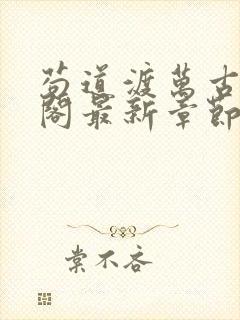 苟道渡萬古
閣最新章節
棠不吝